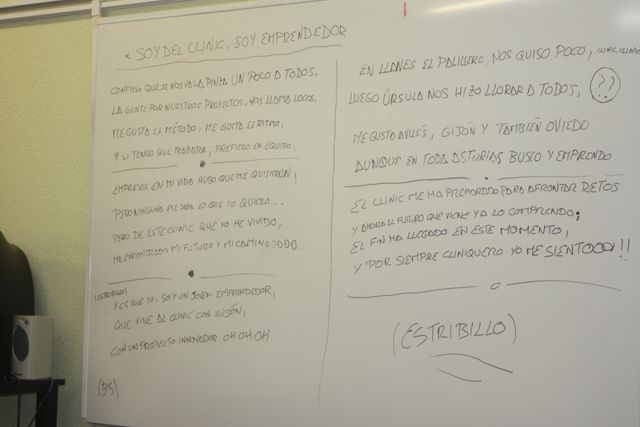 * SOY DEL CLINIC, SOY EMPRENDEDOR
CONFIESO QUE SE NOS VA LA PINZA UN POCO A TODOS,
LA GENTE POR NUESTROS PROYECTOS, NOS LLAMA LOCOS,
ME GUSTA EL MÉTODO, ME GUSTA EL RITMO,
Y SI TENGO QUE TRABAJAR, PREFIERO EN EQUIPO.
EMPRESAS EN MI VIDA HUBO QUE ME QUISIERON,
PERO NINGUNA ME DABA LO QUE YO QUIERO...
PERO DE ESTE CLINIC QUE YO HE VIVIDO,
HE ENCONTRADO MI FUTURO Y MI CAMINO OOO...
(ESTRIBILLO)
Y ES QUE YO, SOY UN JOVEN EMPRENDEDOR,
QUE VINE AL CLINIC CON ILUSIÓN,
CON UN PROYECTO INNOVADOR OH OH OH
(BIS)
EN LLANES EL PALILLERO, NOS QUISO POCO,
LUEGO ÚRSULA NOS HIZO LLORAR A TODOS, ??
ME GUSTA AVILÉS, GIJÓN Y TAMBIÉN OVIEDO
AUNQUE EN TODA ASTURIAS BUSCO Y EMPRENDO
EL CLINIC ME HA PREPARADO PARA AFRONTAR RETOS
Y AHORA EL FUTURO QUE VIENE YA LO COMPRENDO,
EL FIN HA LLEGADO EN ESTE MOMENTO,
Y POR SIEMPRE CLINIQUERO YO ME SIENTOOOO!!!
(ESTRIBILLO)